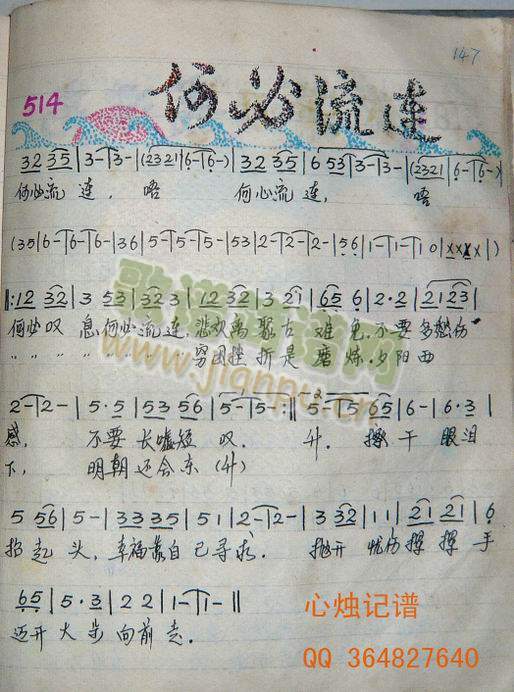 147
514
何必流连
3 2 3 5 | 3 - | 3 - | (2 3 2 1 | 6 - | 6 -) | 3 2 3 5 | 6 5 3 | 3 - | 3 - | (2 3 2 1 | 6 - | 6 -) |
何必流 连, 唔 何必流 连, 唔
(3 5 | 6 - | 6 - | 6 - | 3 6 | 5 - | 5 - | 5 - | 5 3 | 2 - | 2 - | 2 - | 5 6 | 1 - | 1 - | 1 0 | x x x x | )
‖: 1 2 3 2 | 3 5 3 | 3 2 3 | 1 2 3 2 | 3 2 1 | 6 5 6 | 2 · 2 | 2 1 2 3 |
何必叹 息,何必流连,悲欢离聚古 难免,不要多愁伤
" " " " " " " 穷困挫折是 磨炼,夕阳西
2 - | 2 - | 5 · 5 | 5 3 5 6 | 5 - | 5 - :‖ 5 - | 5 6 5 | 6 - | 6 · 3 |
感, 不要 长嘘短 叹. 升. 擦干 眼泪
下, 明朝还会东 (升)
5 5 6 | 5 - | 3 3 3 5 | 5 1 | 2 - | 2 - | 3 3 2 | 1 1 | 2 1 2 1 | 6
抬起 头,幸福靠自己寻求. 抛开 忧伤挥 挥 手
6 5 | 5 · 3 | 2 2 | 1 - | 1 - ‖
迈开大步向前走.
歌谱简谱网
www.jianpu.cn
心烛记谱
QQ 364827640